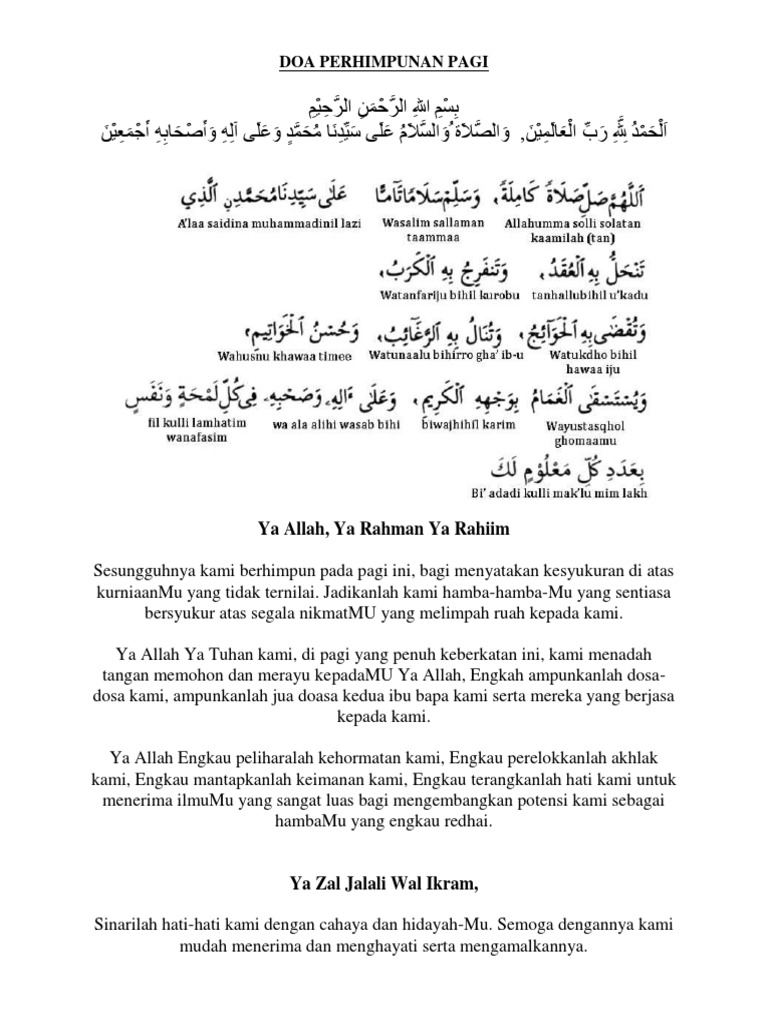 DOA PERHIMPUNAN PAGI
بِسْمِ اللهِ الرَّحْمَنِ الرَّحِيْمِ
اَلْحَمْدُ لِلَّهِ رَبِّ الْعَالَمِيْنَ, وَالصَّلَاةُ وَالسَّلَامُ عَلَى سَيِّدِنَا مُحَمَّدٍ وَعَلَى آلِهِ وَأَصْحَابِهِ أَجْمَعِيْنَ
اَللَّهُمَّ صَلِّ صَلَاةً كَامِلَةً، وَسَلِّمْ سَلَامًا تَآمًّا عَلَى سَيِّدِنَا مُحَمَّدِنِ الَّذِي
Allahumma solli solatan Wasalim sallaman A'laa saidina muhammadinil lazi
kaamilah (tan) taammaa
تَنْحَلُّ بِهِ الْعُقَدُ، وَتَنْفَرِجُ بِهِ الْكُرَبُ،
tanhallubihil u'kadu Watanfariju bihil kurobu
وَتُقْضَى بِهِ الْحَوَآئِجُ، وَتُنَالُ بِهِ الرَّغَآئِبُ، وَحُسْنُ الْخَوَاتِيمِ،
Watukdho bihil Watunaalu bihirro gha' ib-u Wahusnu khawaa timee
hawaa iju
وَيُسْتَسْقَى الْغَمَامُ بِوَجْهِهِ الْكَرِيمِ، وَعَلَى ءَالِهِ، وَصَحْبِهِ، فِي كُلِّ لَمْحَةٍ وَنَفَسٍ
Wayustasqhol biwajhihil karim wa ala alihi wasab bihi fil kulli lamhatim
ghomaamu wanafasim
بِعَدَدِ كُلِّ مَعْلُوْمٍ لَكَ
Bi' adadi kulli mak'lu mim lakh
Ya Allah, Ya Rahman Ya Rahiim
Sesungguhnya kami berhimpun pada pagi ini, bagi menyatakan kesyukuran di atas
kurniaanMu yang tidak ternilai. Jadikanlah kami hamba-hamba-Mu yang sentiasa
bersyukur atas segala nikmatMU yang melimpah ruah kepada kami.
Ya Allah Ya Tuhan kami, di pagi yang penuh keberkatan ini, kami menadah
tangan memohon dan merayu kepadaMU Ya Allah, Engkah ampunkanlah dosa-
dosa kami, ampunkanlah jua doasa kedua ibu bapa kami serta mereka yang berjasa
kepada kami.
Ya Allah Engkau peliharalah kehormatan kami, Engkau perelokkanlah akhlak
kami, Engkau mantapkanlah keimanan kami, Engkau terangkanlah hati kami untuk
menerima ilmuMu yang sangat luas bagi mengembangkan potensi kami sebagai
hambaMu yang engkau redhai.
Ya Zal Jalali Wal Ikram,
Sinarilah hati-hati kami dengan cahaya dan hidayah-Mu. Semoga dengannya kami
mudah menerima dan menghayati serta mengamalkannya.